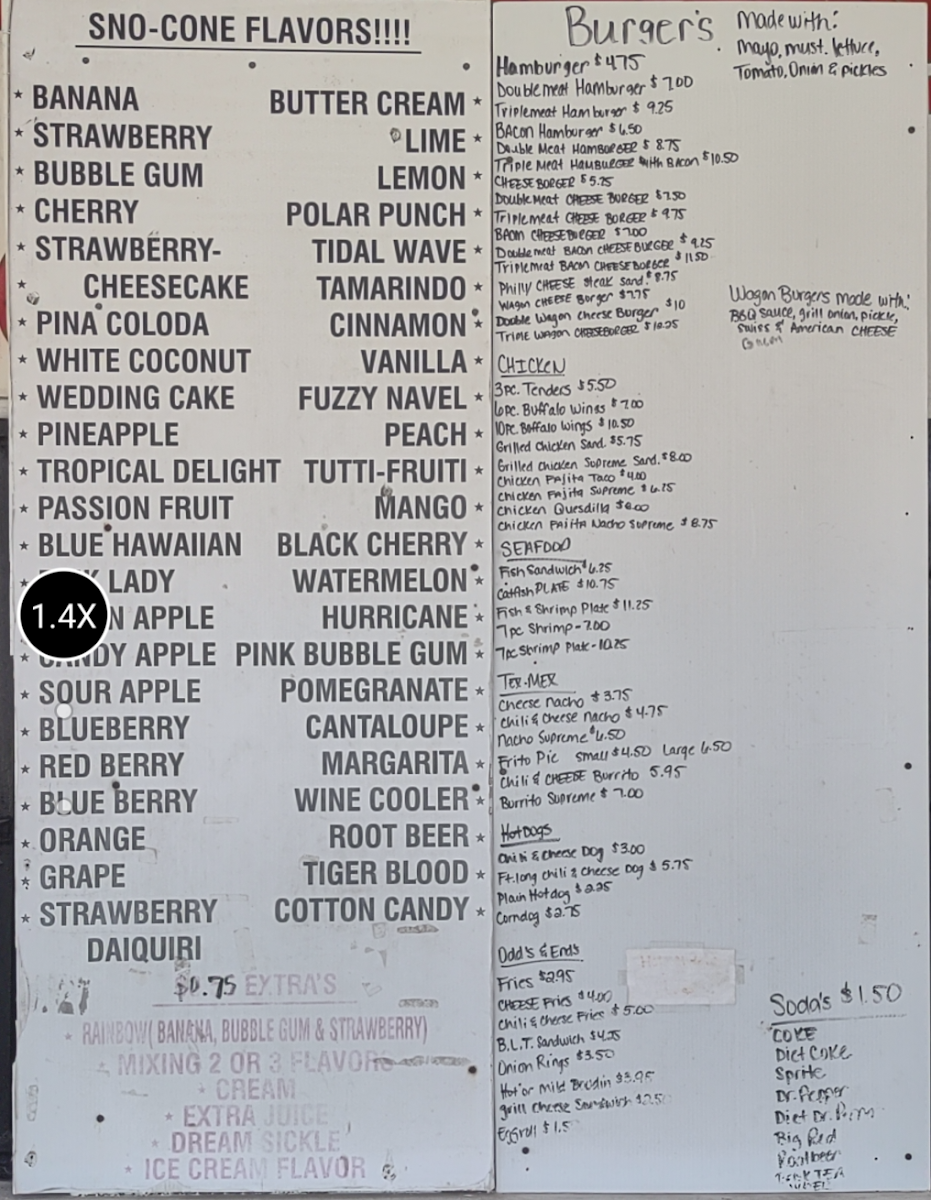 SNO-CONE FLAVORS!!!!
* BANANA
* STRAWBERRY
* BUBBLE GUM
* CHERRY
* STRAWBERRY-
* CHEESECAKE
* PINA COLODA
* WHITE COCONUT
* WEDDING CAKE
* PINEAPPLE
* TROPICAL DELIGHT
* PASSION FRUIT
* BLUE HAWAIIAN
LADY
APPLE
APPLE
* SOUR APPLE
* BLUEBERRY
* RED BERRY
* BLUE BERRY
* ORANGE
* GRAPE
* STRAWBERRY
DAIQUIRI
BUTTER CREAM *
LIME *
LEMON *
POLAR PUNCH *
TIDAL WAVE *
TAMARINDO *
CINNAMON *
VANILLA *
FUZZY NAVEL *
PEACH *
TUTTI-FRUITI *
MANGO *
BLACK CHERRY *
WATERMELON *
HURRICANE *
PINK BUBBLE GUM *
POMEGRANATE *
CANTALOUPE *
MARGARITA *
WINE COOLER *
ROOT BEER *
TIGER BLOOD *
COTTON CANDY *
1.4X
$0.75 EXTRA'S
* RAINBOW( BANANA, BUBBLE GUM & STRAWBERRY)
* MIXING 2 OR 3 FLAVORS
* CREAM
* EXTRA JUICE
* DREAM SICKLE
* ICE CREAM FLAVOR
Burger's
Made with:
Mayo, must. lettuce,
Tomato, Onion & pickles
Hamburger $4.75
Doublemeat Hamburger $7.00
Triplemeat Hamburger $9.25
BAcon Hamburger $6.50
Double Meat HAMBURGER $8.75
Triple Meat HAMBURGER with BAcon $10.50
CHEESEBORGER $5.25
Doublemeat CHEESE BURGER $7.50
Triplemeat CHEESE BORGER $9.75
BAcon CHEESEBURGER $7.00
Doublemeat BACON CHEESE BURGER $9.25
Triplemeat BAcon CHEESEBORGER $11.50
Philly CHEESE Steak Sand. $8.75
Wagon CHEESE Borger $7.75
Double Wagon Cheese Burger $10
Triple Wagon CHEESEBORGER $10.25
Wagon Burgers made with:
BBQ sauce, grill onion, pickle,
Swiss & American CHEESE
CHICKEN
3pc. Tenders $5.50
6pc. Buffalo Wings $7.00
10pc. Boffalo wings $10.50
Grilled Chicken Sand. $5.75
Grilled Chicken Supreme Sand. $8.00
Chicken Fajita Taco $4.00
Chicken Fajita Supreme $6.25
Chicken Quesdilla $6.00
Chicken Fajita Nacho Supreme $8.75
SEAFOOD
Fish Sandwich $6.25
Catfish PLATE $10.75
Fish & Shrimp Plate $11.25
7pc Shrimp - 7.00
7pc Shrimp Plate - 10.25
TEX-MEX
Cheese nacho $3.75
Chili & Cheese Nacho $4.75
Nacho Supreme $6.50
Frito Pie Small $4.50 Large 6.50
Chili & CHEESE Burrito 5.95
Burrito Supreme $7.00
HotDogs
Chili & Cheese Dog $3.00
Ft.long chili & Cheese Dog $5.75
Plain Hotdog $2.25
Corndog $2.75
Odd's & Ends
Fries $2.95
CHEESE Fries $4.00
Chili & Cheese Fries $5.00
B.L.T. Sandwich $4.25
Onion Rings $3.50
Hot or Mild Brudin $3.95
grill Cheese Sandwich $2.50
Eggroll $1.5
Soda's $1.50
COKE
Diet COKE
Sprite
Dr. Pepper
Diet Dr.
Big Red
Rootbeer
TEA